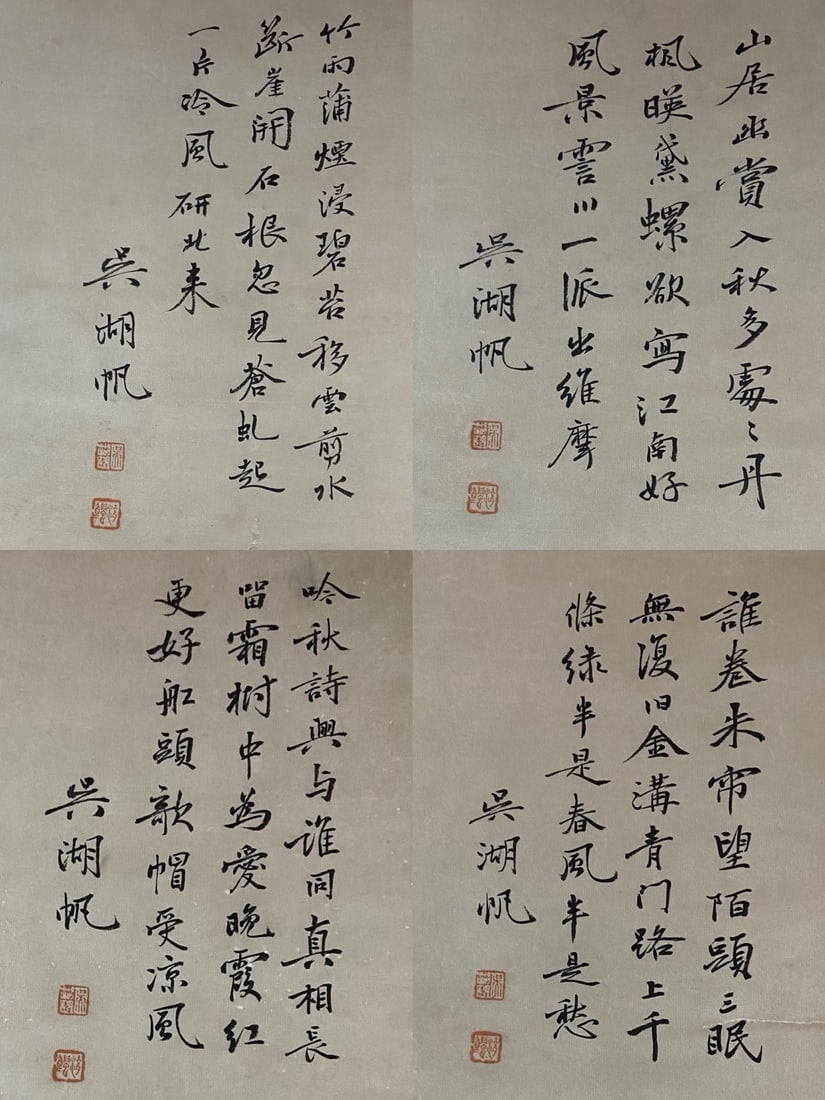 竹雨蒲煙浸碧苔移雲剪水
斷崖開石根忽見蒼虬起
一片冷風研北来
吳湖帆
山居幽賞入秋多處〻丹
楓暎黛螺欲寫江南好
風景霅川一派出維摩
吳湖帆
吟秋詩興与誰同真相長
留霜樹中為愛晚霞紅
更好舡頭欹帽受凉風
吳湖帆
誰卷朱帘望陌頭三眠
無復旧金溝青门路上千
條绿半是春風半是愁
吳湖帆